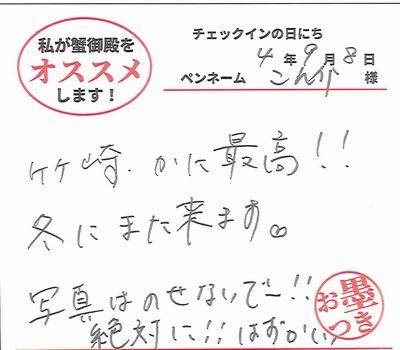 私が蟹御殿を
オススメ
します！
チェックインの日にち
4年9月8日
ペンネーム こんか 様
竹崎かに最高！！
冬にまた来ます。
写真はのせないでー！！
絶対に！！はずかしい
お墨つき